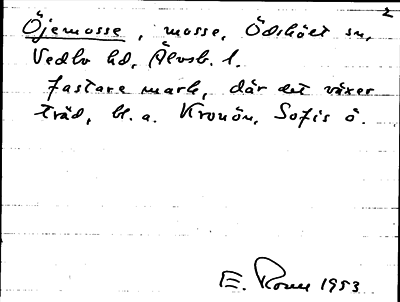 2
Öjemosse, mosse, Ödskölt sn,
Vedbo hd, Älvsb. l.
fastare mark, där det växer
träd, bl. a. Kronön, Sofis ö.
E. 1953